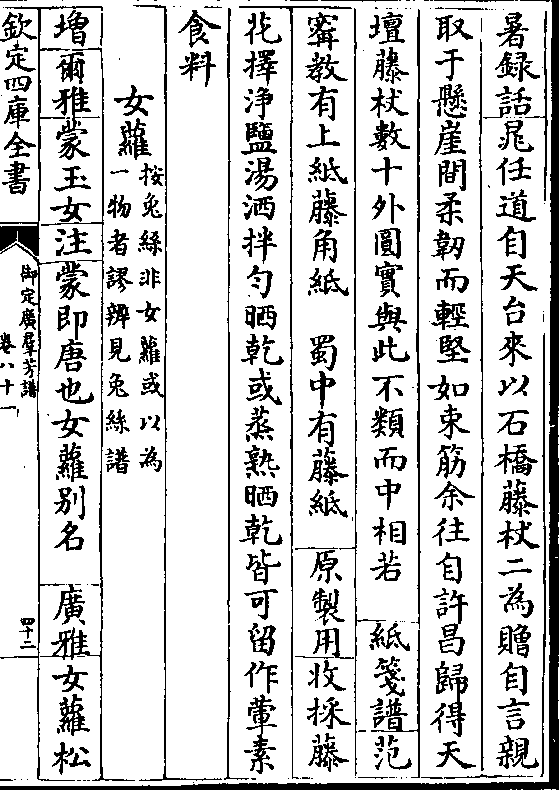 暑録話晁任道自天台來以石橋藤杖二為贈自言親
取于懸崖間柔韌而輕堅如束筋余往自許昌歸得天
壇藤杖數十外圓實與此不類而中相若　紙箋譜范
寗教有上紙藤角紙　蜀中有藤紙　原製用收採藤
花擇浄鹽湯洒拌匀晒乾或蒸熟晒乾皆可留作葷素
食料
女蘿按兔絲非女蘿或以為
一物者謬辨見兔絲譜
增爾雅蒙玉女注蒙即唐也女蘿别名　廣雅女蘿松
欽定四庫全書
御定廣羣芳譜
卷八十一
四十二